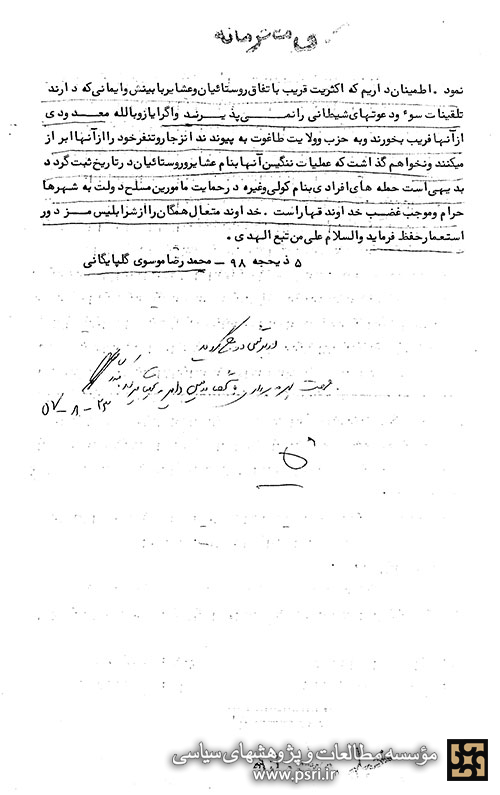 نمود . اطمینان داریم که اکثریت قریب با تفاق روستائیان وعشایر با بینش وایمانی که دارند
تلقینات سوء ودعوتهای شیطانی را نمی پذیرند واگر ایا زوبا لله معدودی
از آنها فریب بخورند وبه حزب وولایت طاغوت به پیوندند انزجار وتنفر خود را از آنها ابراز
میکنند ونخواهم گذاشت که عملیات ننگین آنها بنام عشایر وروستائیان در تاریخ ثبت گردد
بدیهی است حمله های افرادی بنام کولی وغیره در حمایت مامورین مسلح دولت به شهرها
حرام وموجب غضب خداوند قهار است . خداوند متعال همگان را از شر ابلیس مزدور
استعمار حفظ فرماید والسلام علی من تبع الهدی .
۵ ذیحجه ۹۸ ــ محمد رضا موسوی گلپایگانی
۵۷-۸-۲۳
مؤسسه مطالعات و پژوهشهای سیاسی
www.psri.ir